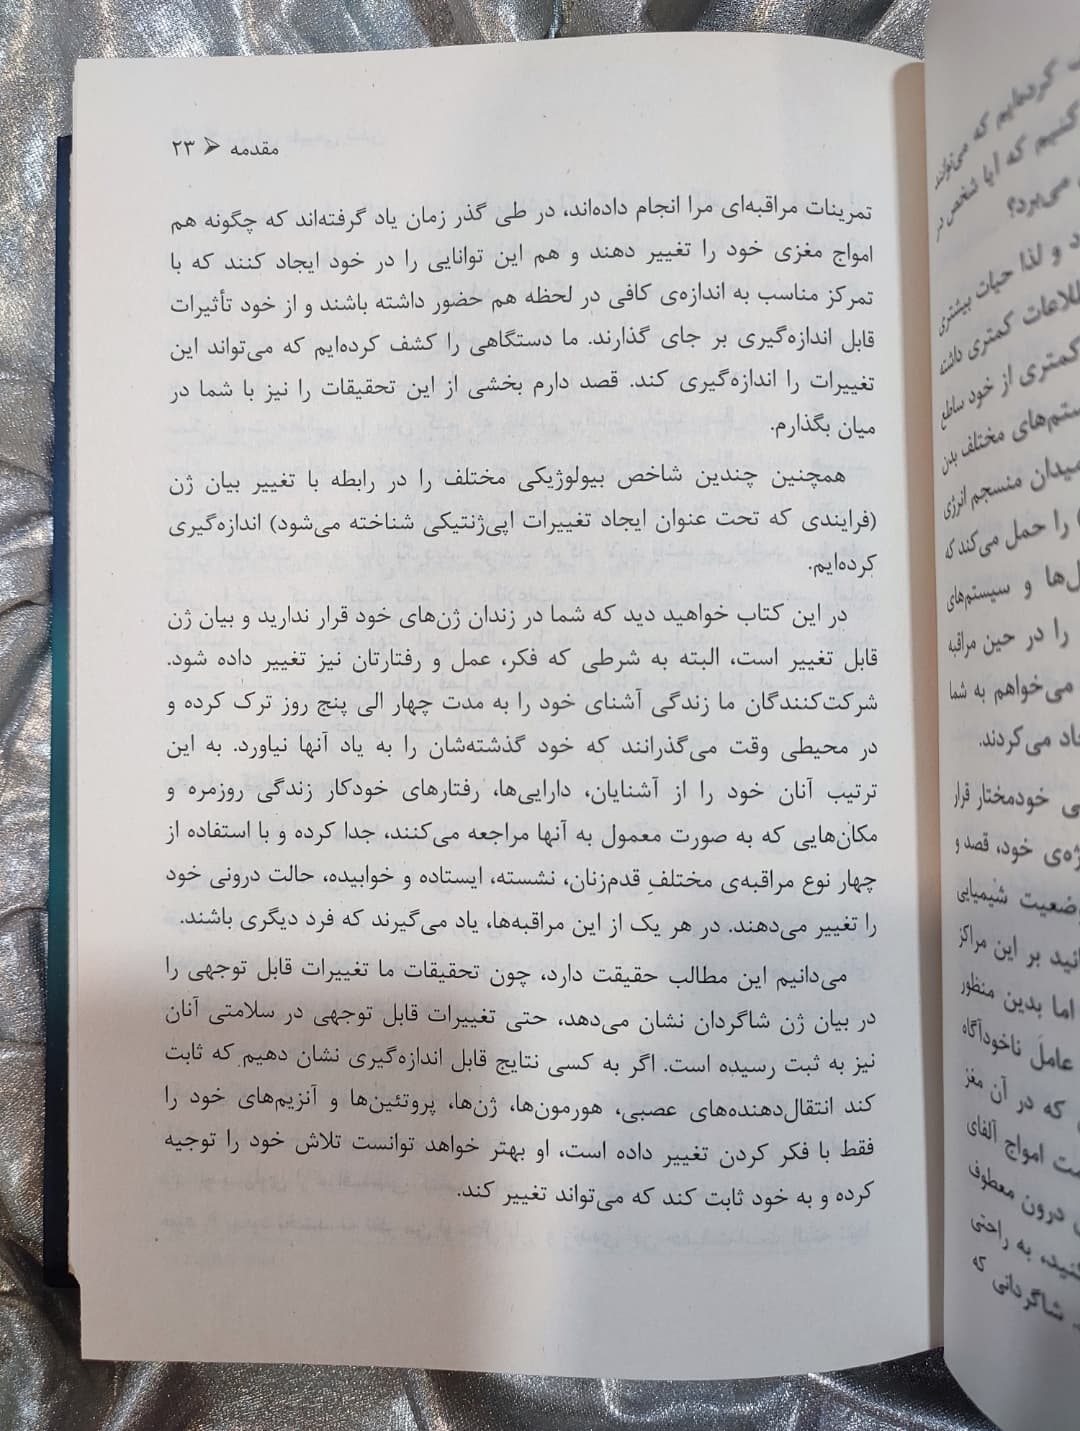 مقدمه ⮜ ۲۳
تمرینات مراقبه‌ای مرا انجام داده‌اند، در طی گذر زمان یاد گرفته‌اند که چگونه هم
امواج مغزی خود را تغییر دهند و هم این توانایی را در خود ایجاد کنند که با
تمرکز مناسب به اندازه‌ی کافی در لحظه هم حضور داشته باشند و از خود تأثیرات
قابل اندازه‌گیری بر جای گذارند. ما دستگاهی را کشف کرده‌ایم که می‌تواند این
تغییرات را اندازه‌گیری کند. قصد دارم بخشی از این تحقیقات را نیز با شما در
میان بگذارم.
همچنین چندین شاخص بیولوژیکی مختلف را در رابطه با تغییر بیان ژن
(فرایندی که تحت عنوان ایجاد تغییرات اپی‌ژنتیکی شناخته می‌شود) اندازه‌گیری
کرده‌ایم.
در این کتاب خواهید دید که شما در زندان ژن‌های خود قرار ندارید و بیان ژن
قابل تغییر است، البته به شرطی که فکر، عمل و رفتارتان نیز تغییر داده شود.
شرکت‌کنندگان ما زندگی آشنای خود را به مدت چهار الی پنج روز ترک کرده و
در محیطی وقت می‌گذرانند که خود گذشته‌شان را به یاد آنها نیاورد. به این
ترتیب آنان خود را از آشنایان، دارایی‌ها، رفتارهای خودکار زندگی روزمره و
مکان‌هایی که به صورت معمول به آنها مراجعه می‌کنند، جدا کرده و با استفاده از
چهار نوع مراقبه‌ی مختلفِ قدم‌زنان، نشسته، ایستاده و خوابیده، حالت درونی خود
را تغییر می‌دهند. در هر یک از این مراقبه‌ها، یاد می‌گیرند که فرد دیگری باشند.
می‌دانیم این مطالب حقیقت دارد، چون تحقیقات ما تغییرات قابل توجهی را
در بیان ژن شاگردان نشان می‌دهد، حتی تغییرات قابل توجهی در سلامتی آنان
نیز به ثبت رسیده است. اگر به کسی نتایج قابل اندازه‌گیری نشان دهیم که ثابت
کند انتقال‌دهنده‌های عصبی، هورمون‌ها، ژن‌ها، پروتئین‌ها و آنزیم‌های خود را
فقط با فکر کردن تغییر داده است، او بهتر خواهد توانست تلاش خود را توجیه
کرده و به خود ثابت کند که می‌تواند تغییر کند.
کرده‌ایم که می‌توانند
کنیم که آیا شخص در
می‌برد؟
و لذا حیات بیشتری
کمتری داشته
کمتری از خود ساطع
مختلف بدن
میدان منسجم انرژی
را حمل می‌کند که
و سیستم‌های
را در حین مراقبه
می‌خواهم به شما
می‌کردند.
خودمختار قرار
خود، قصد و
شیمیایی
بر این مراکز
اما بدین منظور
عامل ناخودآگاه
که در آن مغز
امواج آلفای
درون معطوف
به راحتی
شاگردانی که